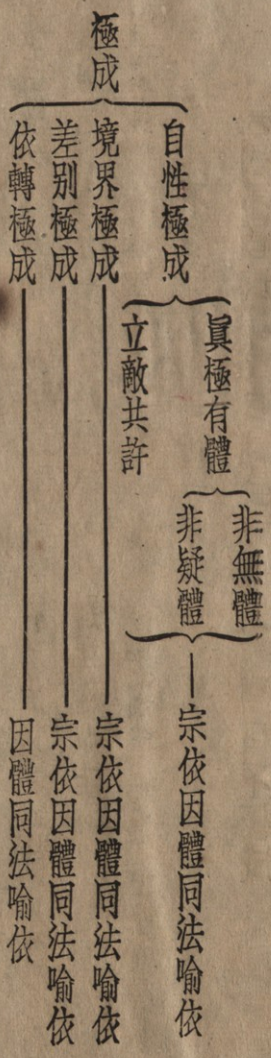 極成
自性極成
眞極有體
非無體
非疑體
立敵共許
宗依因體同法喻依
境界極成
宗依因體同法喻依
差別極成
宗依因體同法喻依
依轉極成
因體同法喻依